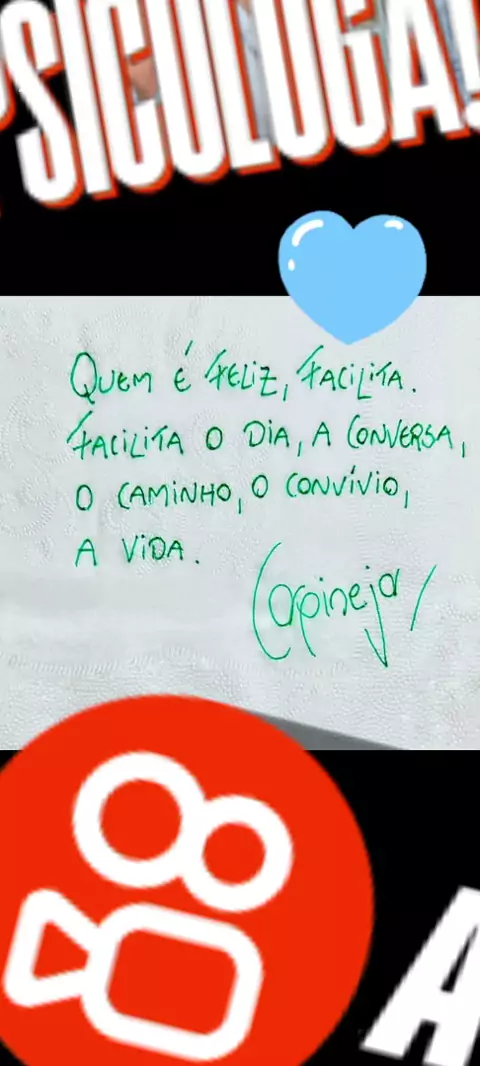 PSICÓLOGA!
QUEM É FELIZ, FACILITA.
FACILITA O DIA, A CONVERSA,
O CAMINHO, O CONVÍVIO,
A VIDA.
Carpinejar
A